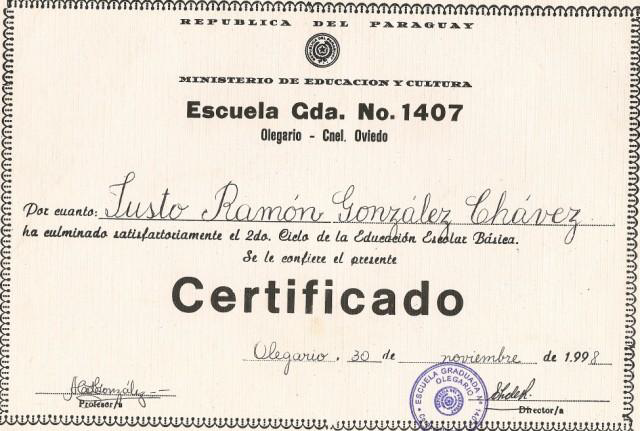 REPUBLICA DEL PARAGUAY
MINISTERIO DE EDUCACION Y CULTURA
Escuela Gda. No. 1407
Olegario - Cnel. Oviedo
Por cuanto: Justo Ramón González Chávez
ha culminado satisfactoriamente el 2do. Ciclo de la Educación Escolar Básica.
Se le confiere el presente
Certificado
Olegario, 30 de noviembre de 1.998
González
Profesor/a
ESCUELA GRADUADA Nº
OLEGARIO
Director/a